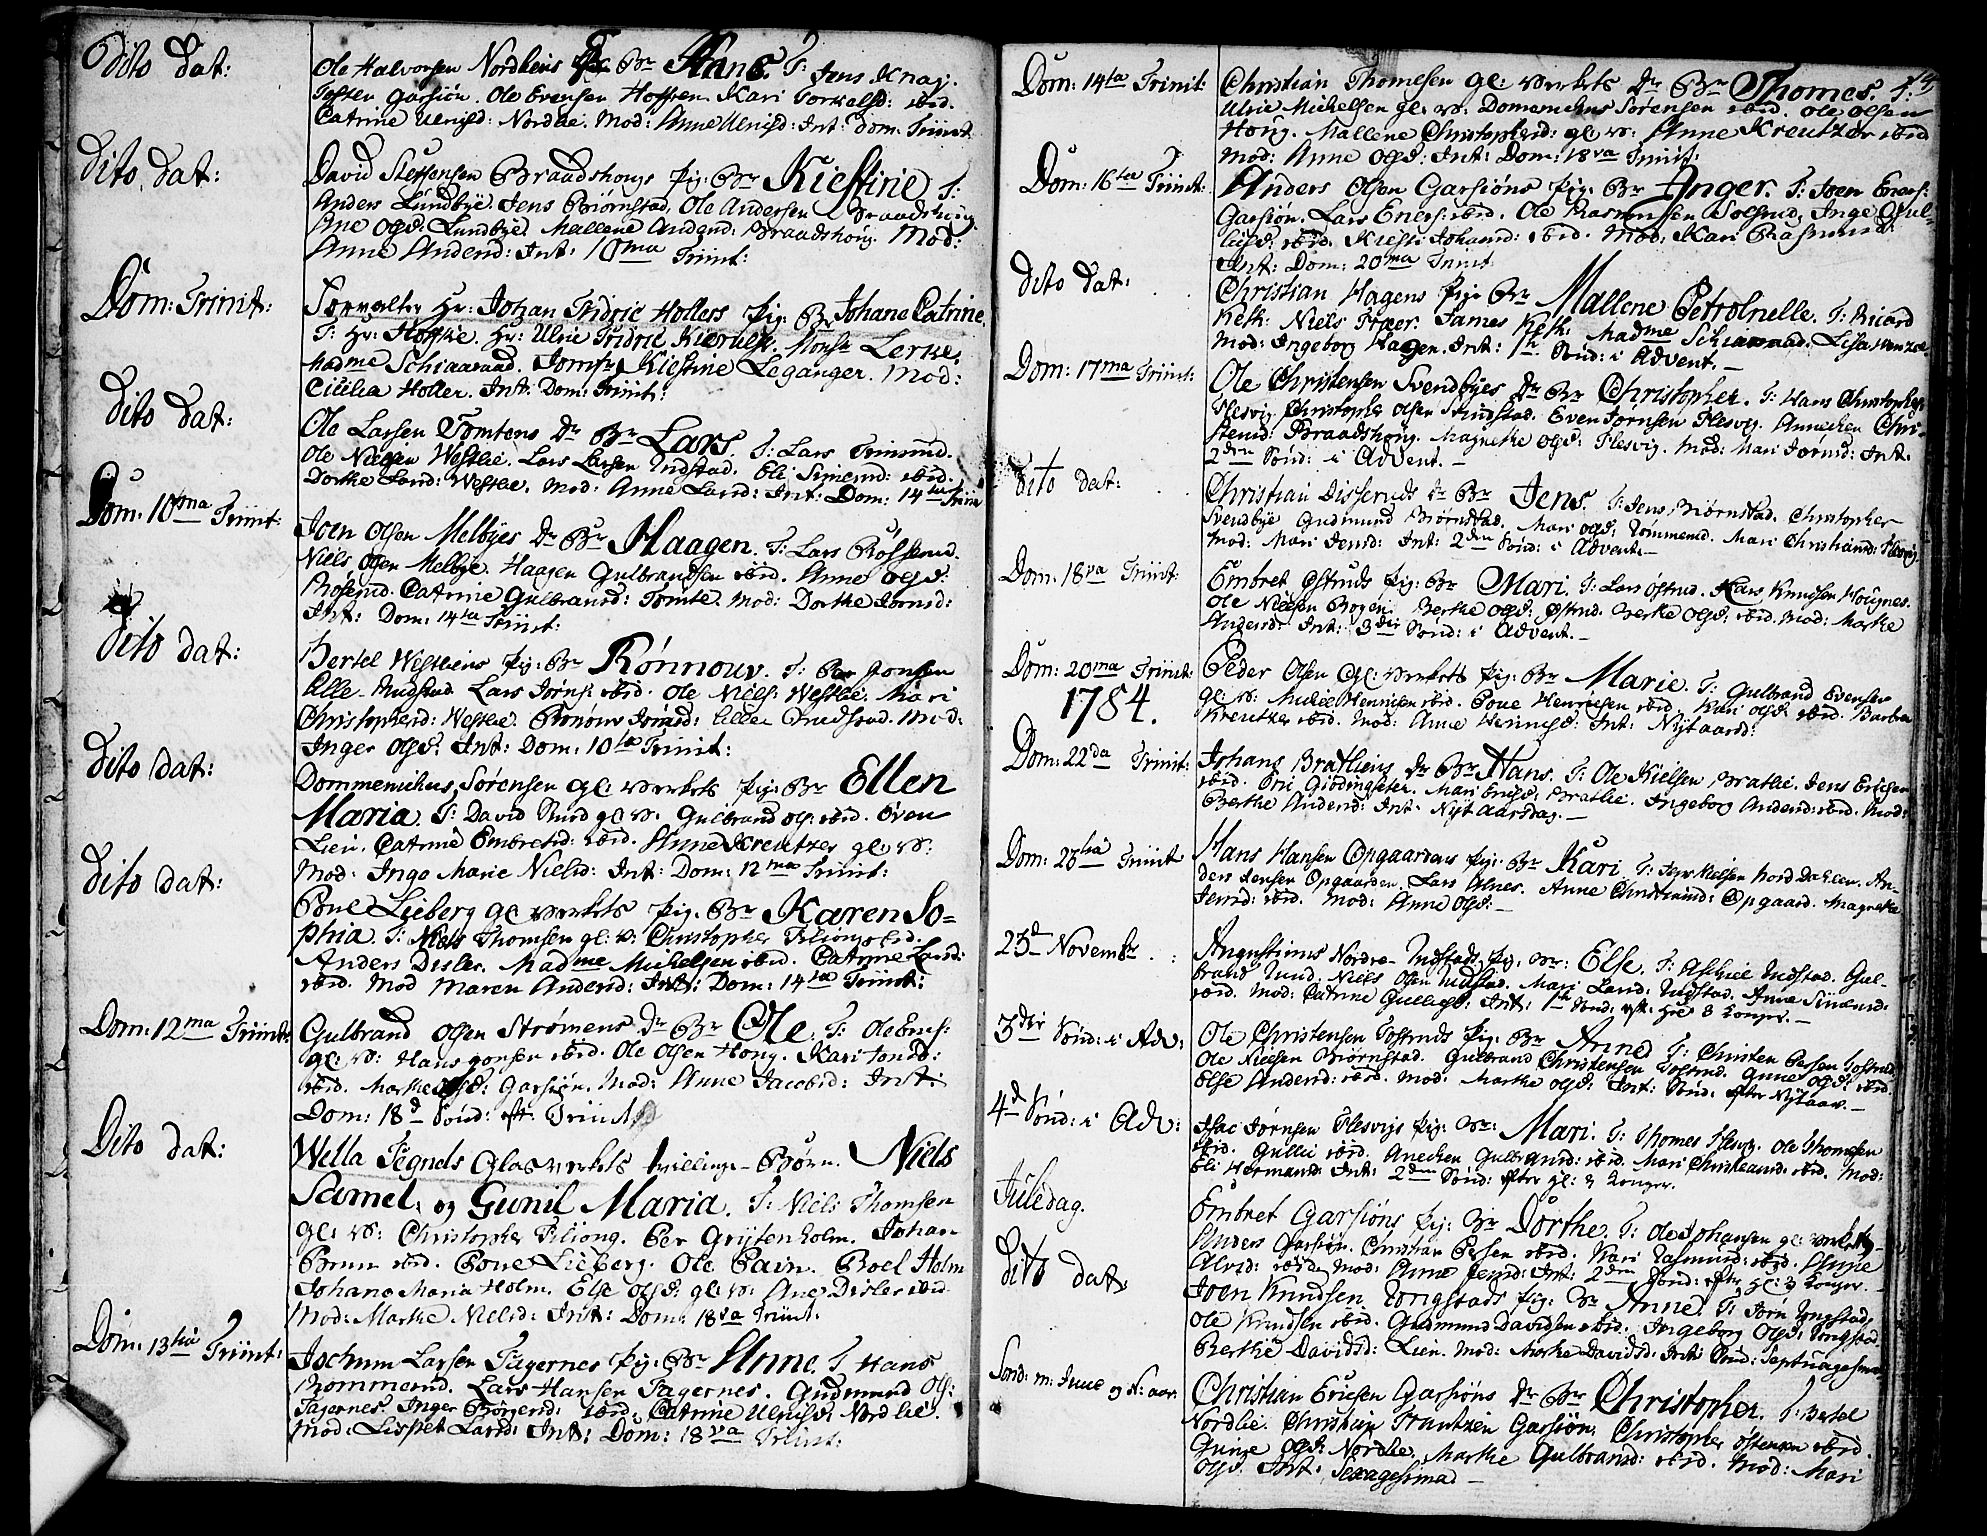 Dito dat:
Ole Halvorsen Nordliens Br Hans. T: Jens Knag.
Tosten Garsiön. Ole Evensen Hoffren. Kari Torkelsd: ibid.
Catrine Ulrichsd: Nordlie. Mod: Anne Ulrichsd: Int: Dom: Trinit:
Dito dat:
David Steffensen Braadshougs pig: Br Kiestine T:
Anders Lundbye. Jens Biørnstad. Ole Andersen Braadshoug
Ane Olsd: Lundbye. Mallene Andersd: Braadshoug. Mod:
Anne Andersd: Int: 10ma Trinit:
Dom: Trinit:
Forvalter Hr: Johan Fridric Hollers pig: Br Johane Catrine.
T: Hr: Hofkie. Hr: Ulric Fridric Kierulf. Monsr Lerke.
Madme Schiaaraad. Jomfr Kiestine Leganger. Mod:
Cicilia Holler. Int: Dom: Trinit:
Dito dat:
Ole Larsen Tomtens Dr Br Lars. T: Lars Trinrud.
Ole Nielsen Westlie. Lars Larsen Indstad. Eli Simensd: ibid:
Dorthe Larsd: Westlie. Mod: Anne Larsd: Int: Dom: 14ta Trinit
Dom: 10ma Trinit:
Joen Olsen Melbyes Dr Br Haagen. T: Lars Røsserud.
Niels Olsen Melbye. Haagen Gulbrandsen ibid. Anne Olsd:
Røserud. Catrine Gulbransd: Tomte. Mod: Dorthe Jørnsd:
Int: Dom: 14ta Trinit:
Dito dat:
Bertel Westliens pig: Br Rønnouv. T: Per Jonsen
Alle. Indstad. Lars Jørns: ibid. Ole Niels: Westlie. Mari
Christophersd: Westlie. Rønouv Jørnsd: Mod:
Inger Olsd: Int: Dom: 10ta Trinit:
Dito dat:
Dommenichus Sørensen Gl: værkets pig: Br Ellen
Maria. T: David Sturd gl: v: Gulbrand Ols: ibid. Even
Lien. Catrine Embretsd: ibid. Anne Kreutzer gl: v:
Mod: Inge Marie Nielsd: Int: Dom: 12ma Trinit:
Dito dat:
Poul Lieberg Gl værkets pig: Br Karen So=
phia. T: Niels Thomsen gl: v: Christopher Filiong ibid.
Anders Disler. Madme Michelsen ibid. Catrine Larsd:
ibid. Mod Maren Andersd: Int: Dom: 14ta Trinit:
Dom: 12ma Trinit:
Gulbrand Olsen Strømens Dr Br Ole. T: Ole Enes:
gl: v: Hans Jonsen ibid. Ole Olsen Houg. Kari Jonsd:
ibid. Marthe Olsd: Garsiøn. Mod: Anne Jacobsd: Int:
Dom: 18d Sønd: eft: Trinit
Dito dat:
Wella Tegnels Glasværkets tvillinge-Børn. Niels
Samel, og Gunil Maria. T: Niels Thomsen
gl: v: Christopher Filiong. Per Grytenholm. Johan
Brun ibid. Poue Lieberg. Ole Pain. Boel Holm
Johana Maria Holm. Else Olsd: gl: v: Ane Disler ibid
Mod: Marthe Nielsd: Int: Dom: 18va Trinit.
Dom: 13tia Trinit:
Jochum Larsen Fagernes pig: Br Anne. T: Hans
Rommerud. Lars Hansen Fagernes. Gudmund Ols:
Fagernes. Inger Børgersd: ibid: Catrine Ulrichsd: Nordlie.
Mod: Lispet Larsd: Int: Dom: 18va Trinit:
Dom: 14ta Trinit:
Christian Thomesen gl: værkets Dr Br Thomes. T:
Ulric Michelsen gl: v: Domenichus Sørensen ibid. Ole Olsen
Houg. Mallene Christophersd: gl: v: Anne Kreutzer ibid
Mod: Anne Olsd: Int: Dom: 18va Trinit:
Dom: 16ta Trinit:
Anders Olsen Garsiøns pig: Br Inger. T: Joen Eners:
Garsiøn. Lars Eners: ibid. Ole Rasmusen Solsrud. Inge Gul=
liksd: ibid. Kiesti Johansd: ibid. Mod: Kari Rasmusd:
Int: Dom: 20ma Trinit
Dito dat:
Christian Hagens pig: Br Mallene Petrolnelle. T: Ricard
Keth: Niels Træer. James Keth: Madme Schiaaraad. Lisa Wentzel
Mod: Ingeborg Hagen. Int: 1te Sønd: i Advent. —
Dom: 17ma Trinit:
Ole Christensen Svendbyes Dr Br Christopher. T: Hans Christophers:
Flesvig. Christopher Olsen Stridstad. Even Jørnsen Flesvig. Annechen Chri-
stensd: Braadshoug. Magrethe Olsd: Flesvig. Mod: Mari Jørnsd: Int:
2den Sønd: i Advent. —
Dito dat:
Christian Disseruds Dr Br Jens. T: Jens Biørnstad. Christopher
Svendbye Gudmund Biørnstad. Mari Olsd: Tømmerud. Mari Christiansd: Flesvig
Mod: Mari Jensd: Int: 2den Sønd: i Advent. —
Dom: 18va Trinit:
Embret Østruds pig: Br Mari. T: Lars Østrud. Hans Knudsen Hougnes.
Ole Nielsen Bogen. Berthe Olsd: Østrud. Berthe Olsd: ibid. Mod: Marthe
Andersd: Int: 3die Sønd: i Advent. —
Dom: 20ma Trinit:
Peder Olsen Gl: værkets pig: Br Marie. T: Gulbrand Evensen
1784.
gl: v: Michel Henrichsen ibid. Poue Henrichsen ibid. Kari Olsd: ibid. Barbra
Kreutzer ibid. Mod: Anne Henrichsd: Int: Nytaarsd:
Dom: 22da Trinit:
Johans Brathiens Dr Br Hans. T: Ole Kielsen Bratlie. Jens Ericsen
ibid. Eric Giddingseter. Mari Ericsd: Bratlie. Ingeborg Andersd: ibid. Mod:
Berthe Andersd: Int: Nytaarsdag. —
Dom: 23tia Trinit
Hans Hansen Opgaardens pig: Br Kari. T: Jepe Nielsen Nord Dahlen. An-
ders Jensen Opgaarden. Lars Alnes. Anne Christiansd: Opgaard. Magrethe
Jensd: ibid. Mod: Anne Olsd: —
23d Novembr
Augustinus Nordre Indstads pig. Br: Else. T: Aslac Indstad. Gul-
brand Lund. Niels Olsen Indstad. Mari Larsd: Indstad. Anne Simensd:
ibid. Mod: Catrine Gulliksd: Int: 1te Sønd: eft: Hel: 3 Konger. —
3die Sønd: i Adv:
Ole Christensen Tostruds pig: Br Anne T: Christen Persen Tostrud
Ole Nielsen Biørnstad. Gulbrand Christensen Tostrud. Gunne Olsd: ibid.
Else Andersd: ibid. Mod: Marthe Olsd: Int: Sønd: efter Nytaar. —
4d Sønd: i Adv:
Isac Jørnsen Flesvigs pig: Br: Mari. T: Thomes Flesvig. Ole Thomsen
ibid. Gullic ibid. Anechen Gulbransd: ibid. Mari Christiansd: ibid. Mod:
Eli Hermansd: Int: 2den Sønd: efter gl: 3 Konger.
Juledag.
Embret Garsiøns pig: Br Dorthe. T: Ole Johansen gl: værket
Anders Garsiøn. Christian Persen ibid. Kari Rasmusd: ibid. Anne
Alvsd: ibid. Mod: Anne Jensd: Int: 2den Sønd: efter Hl: 3 Konger. —
Dito dat:
Joen Knudsen Tongstads pig: Br Anne. T: Jørn Tongstad,
Ole Knudsen ibid. Gudmund Davidsen ibid. Ingeborg Olsd: Tongstad.
Berthe Davidsd: Lien. Mod: Marthe Davidsd: Int: Sønd: Septuagesima
Sønd: m: Juue og N: aar:
Christian Ericsen Garsiøns Dr Br Christopher. T: Bertel
Nordlie. Christian Frantzen Garsiøn. Christopher Østensen ibid.
Gunre Olsd: Nordlie. Marthe Gulbransd: ibid. Mod: Mari
Olsd: Int: Sexagesimad —